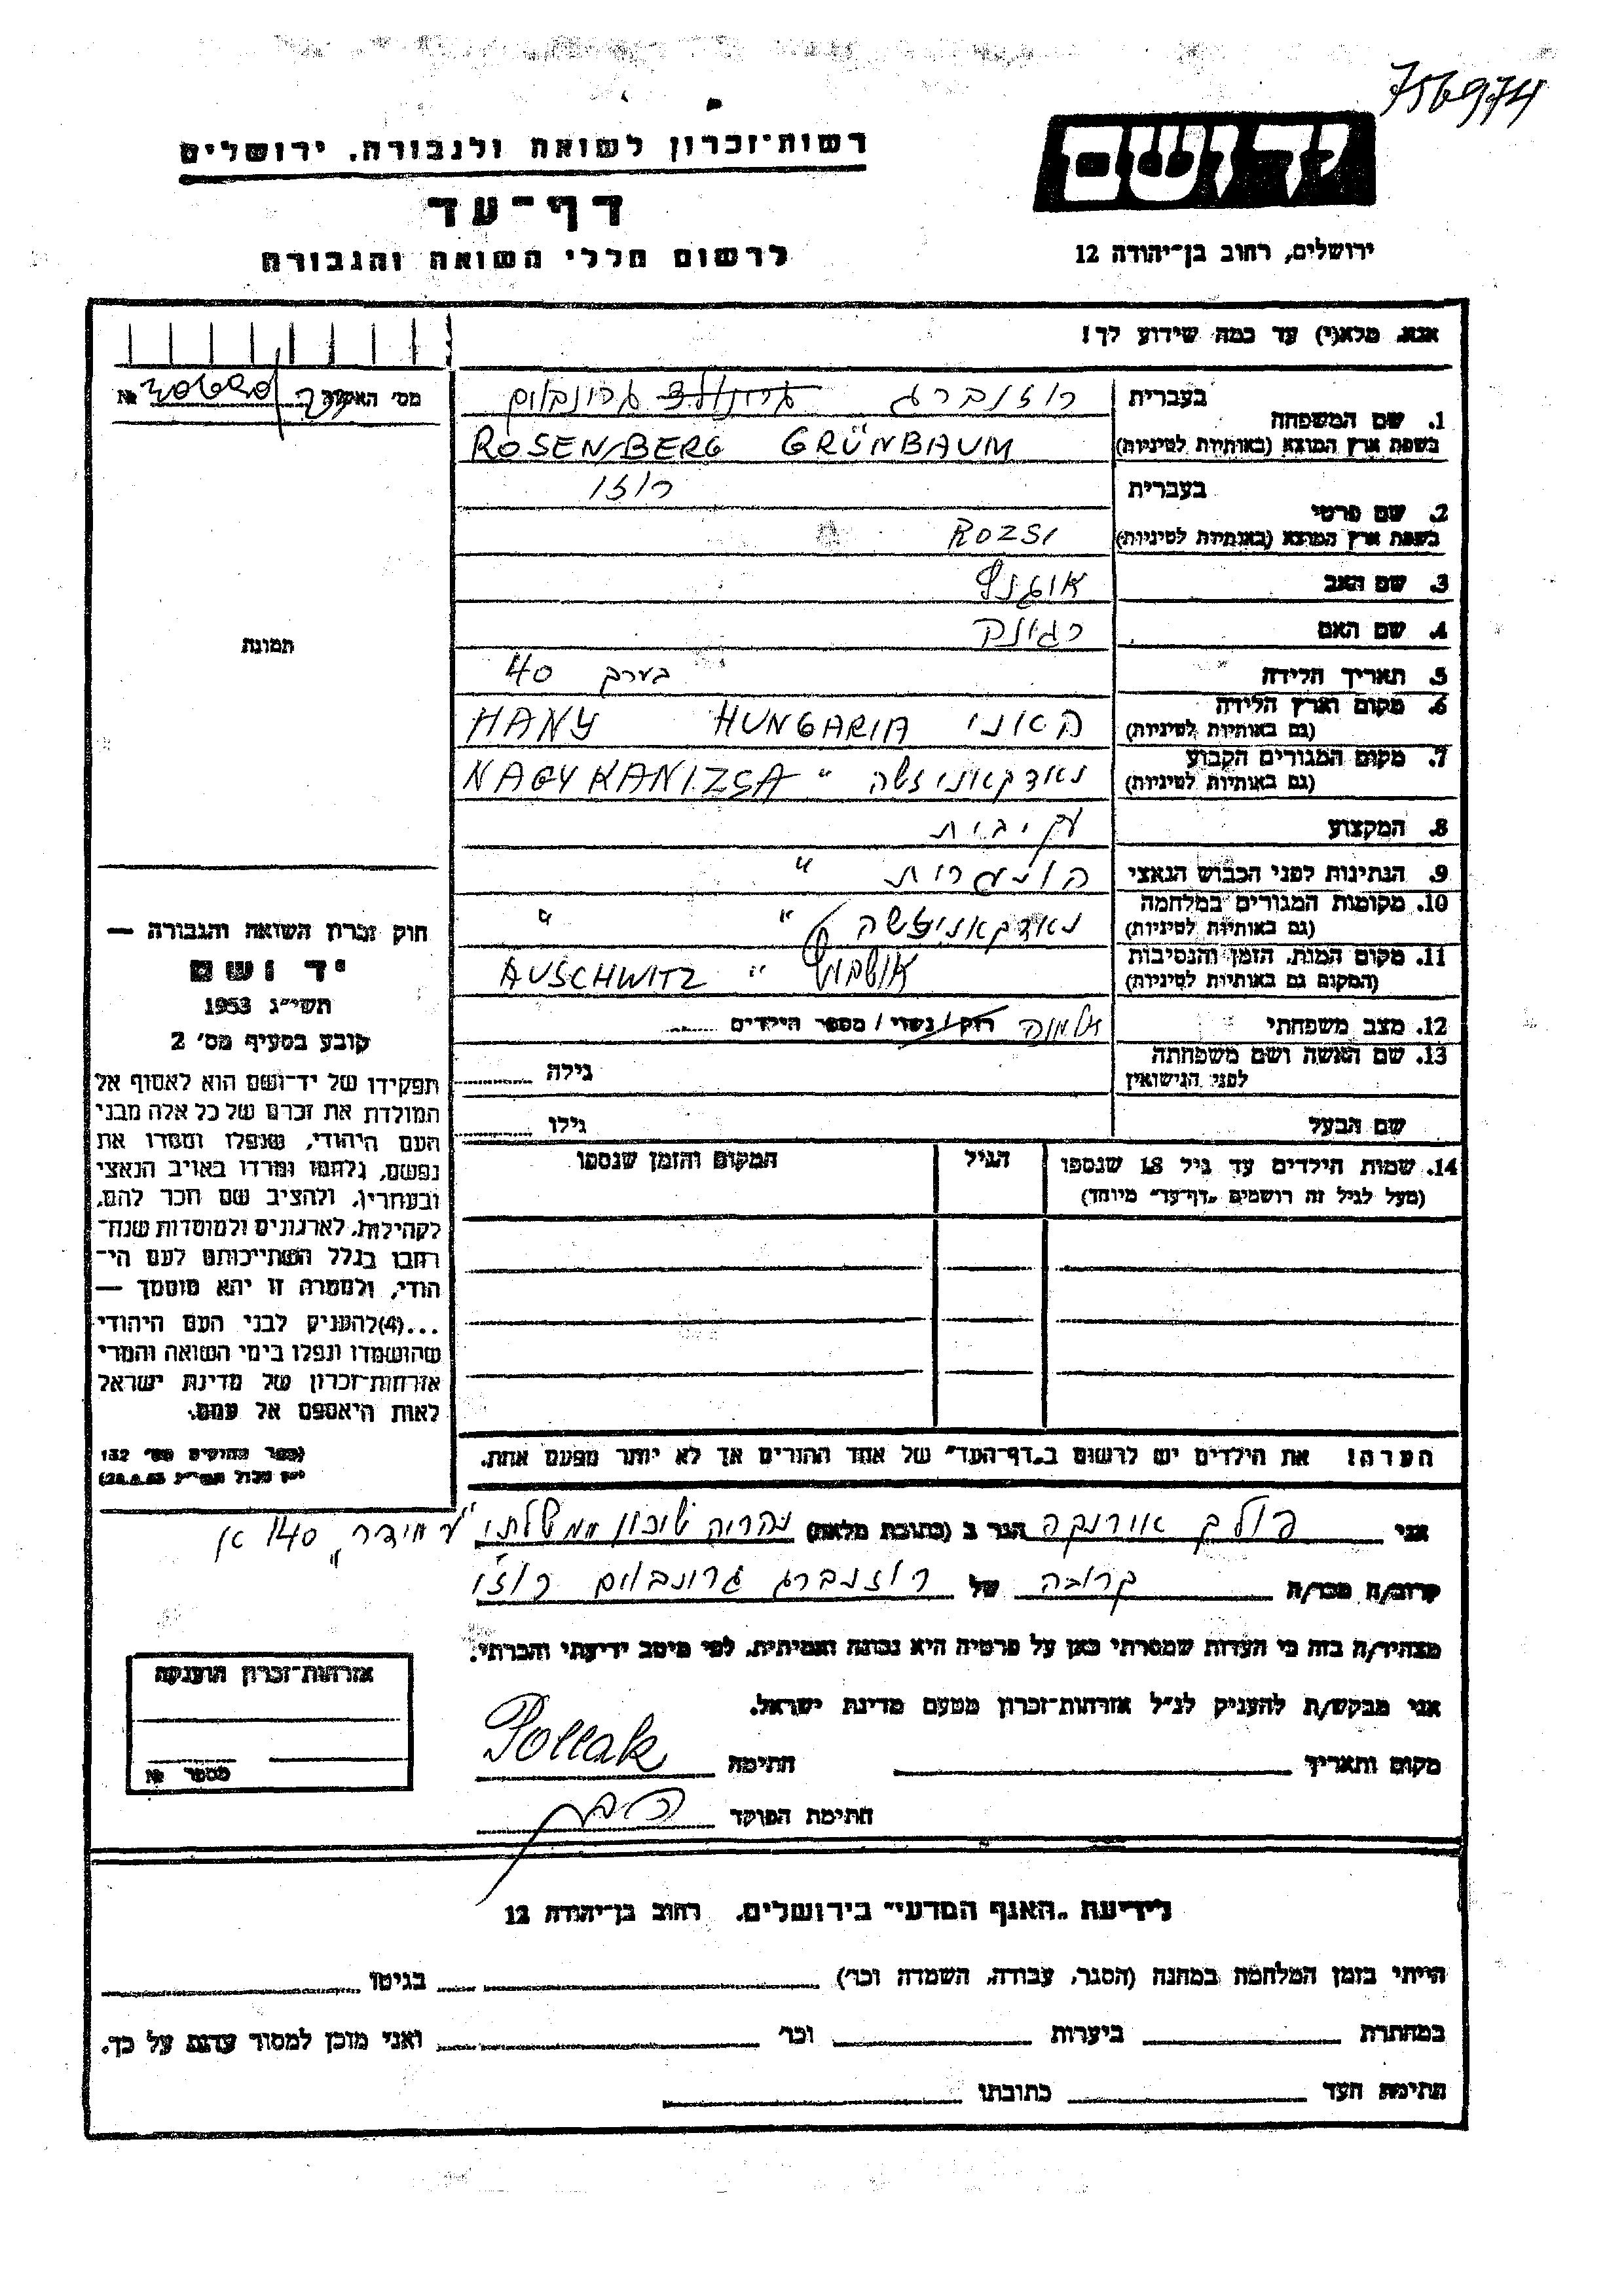 756974
יד ושם
ירושלים, רחוב בן־יהודה 12
רשות־זכרון לשואה ולגבורה, ירושלים
דף־עד
לרשום חללי השואה והגבורה
אנא, מלא(י) עד כמה שידוע לך!
מס׳ האשה №
תמונה
1. שם המשפחה
בעברית רוזנברג גרונבלום
בשפת ארץ המוצא (באותיות לטיניות) ROSENBERG GRÜNBAUM
2. שם פרטי
בעברית רוזי
בשפת ארץ המוצא (באותיות לטיניות) ROZSI
3. שם האב
4. שם האם
5. תאריך הלידה בערך 40
6. מקום וארץ הלידה (גם באותיות לטיניות) האני HUNGARIA HANY
7. מקום המגורים הקבוע (גם באותיות לטיניות) נאדקאניזשה " NAGYKANIZSA
8. המקצוע
9. הנתינות לפני הכבוש הנאצי הונגרית "
10. מקומות המגורים במלחמה (גם באותיות לטיניות) נאדקאניזשה " "
11. מקום המות, הזמן והנסיבות (המקום גם באותיות לטיניות) אושביץ " AUSCHWITZ
12. מצב משפחתי אלמנה רווק/נשוי/מספר הילדים
13. שם האשה ושם משפחתה לפני הנישואין גילה
שם הבעל גילו
14. שמות הילדים עד גיל 18 שנספו (מעל לגיל זה רושמים „דף־עד״ מיוחד) הגיל המקום והזמן שנספו
חוק זכרון השואה והגבורה —
יד ושם
תשי״ג 1953
קובע בסעיף מס׳ 2
תפקידו של יד־ושם הוא לאסוף אל
המולדת את זכרם של כל אלה מבני
העם היהודי, שנפלו ומסרו את
נפשם, נלחמו ומרדו באויב הנאצי
ובעוזריו, ולהציב שם וזכר להם,
לקהילות, לארגונים ולמוסדות שנח־
רבו בגלל השתייכותם לעם הי־
הודי, ולמטרה זו יהא מוסמך —
...(4)להעניק לבני העם היהודי
שהושמדו ונפלו בימי השואה והמרי
אזרחות־זכרון של מדינת ישראל
לאות היאספם אל עמם.
(ספר החוקים מס׳ 132
הערה! את הילדים יש לרשום ב„דף־העד״ של אחד ההורים אך לא יותר מפעם אחת.
אני פולק אירנקה הגר ב (כתובת מלאה) נהריה שיכון ממשלתי 140 א
קרוב/ה מכר/ה קרובה של רוזנברג גרונבלום רוזי
מצהיר/ה בזה כי העדות שמסרתי כאן על פרטיה היא נכונה ואמיתית, לפי מיטב ידיעתי והכרתי.
אני מבקש/ת להעניק לנ״ל אזרחות־זכרון מטעם מדינת ישראל.
מקום ותאריך חתימה Pollak
חתימת הפוקד
אזרחות־זכרון הוענקה
מספר №
לידיעת „האגף המדעי״ בירושלים, רחוב בן־יהודה 12
הייתי בזמן המלחמה במחנה (הסגר, עבודה, השמדה וכו׳) בגיטו
במחתרת ביערות וכו׳ ואני מוכן למסור עדות על כך.
חתימת העד כתובתו